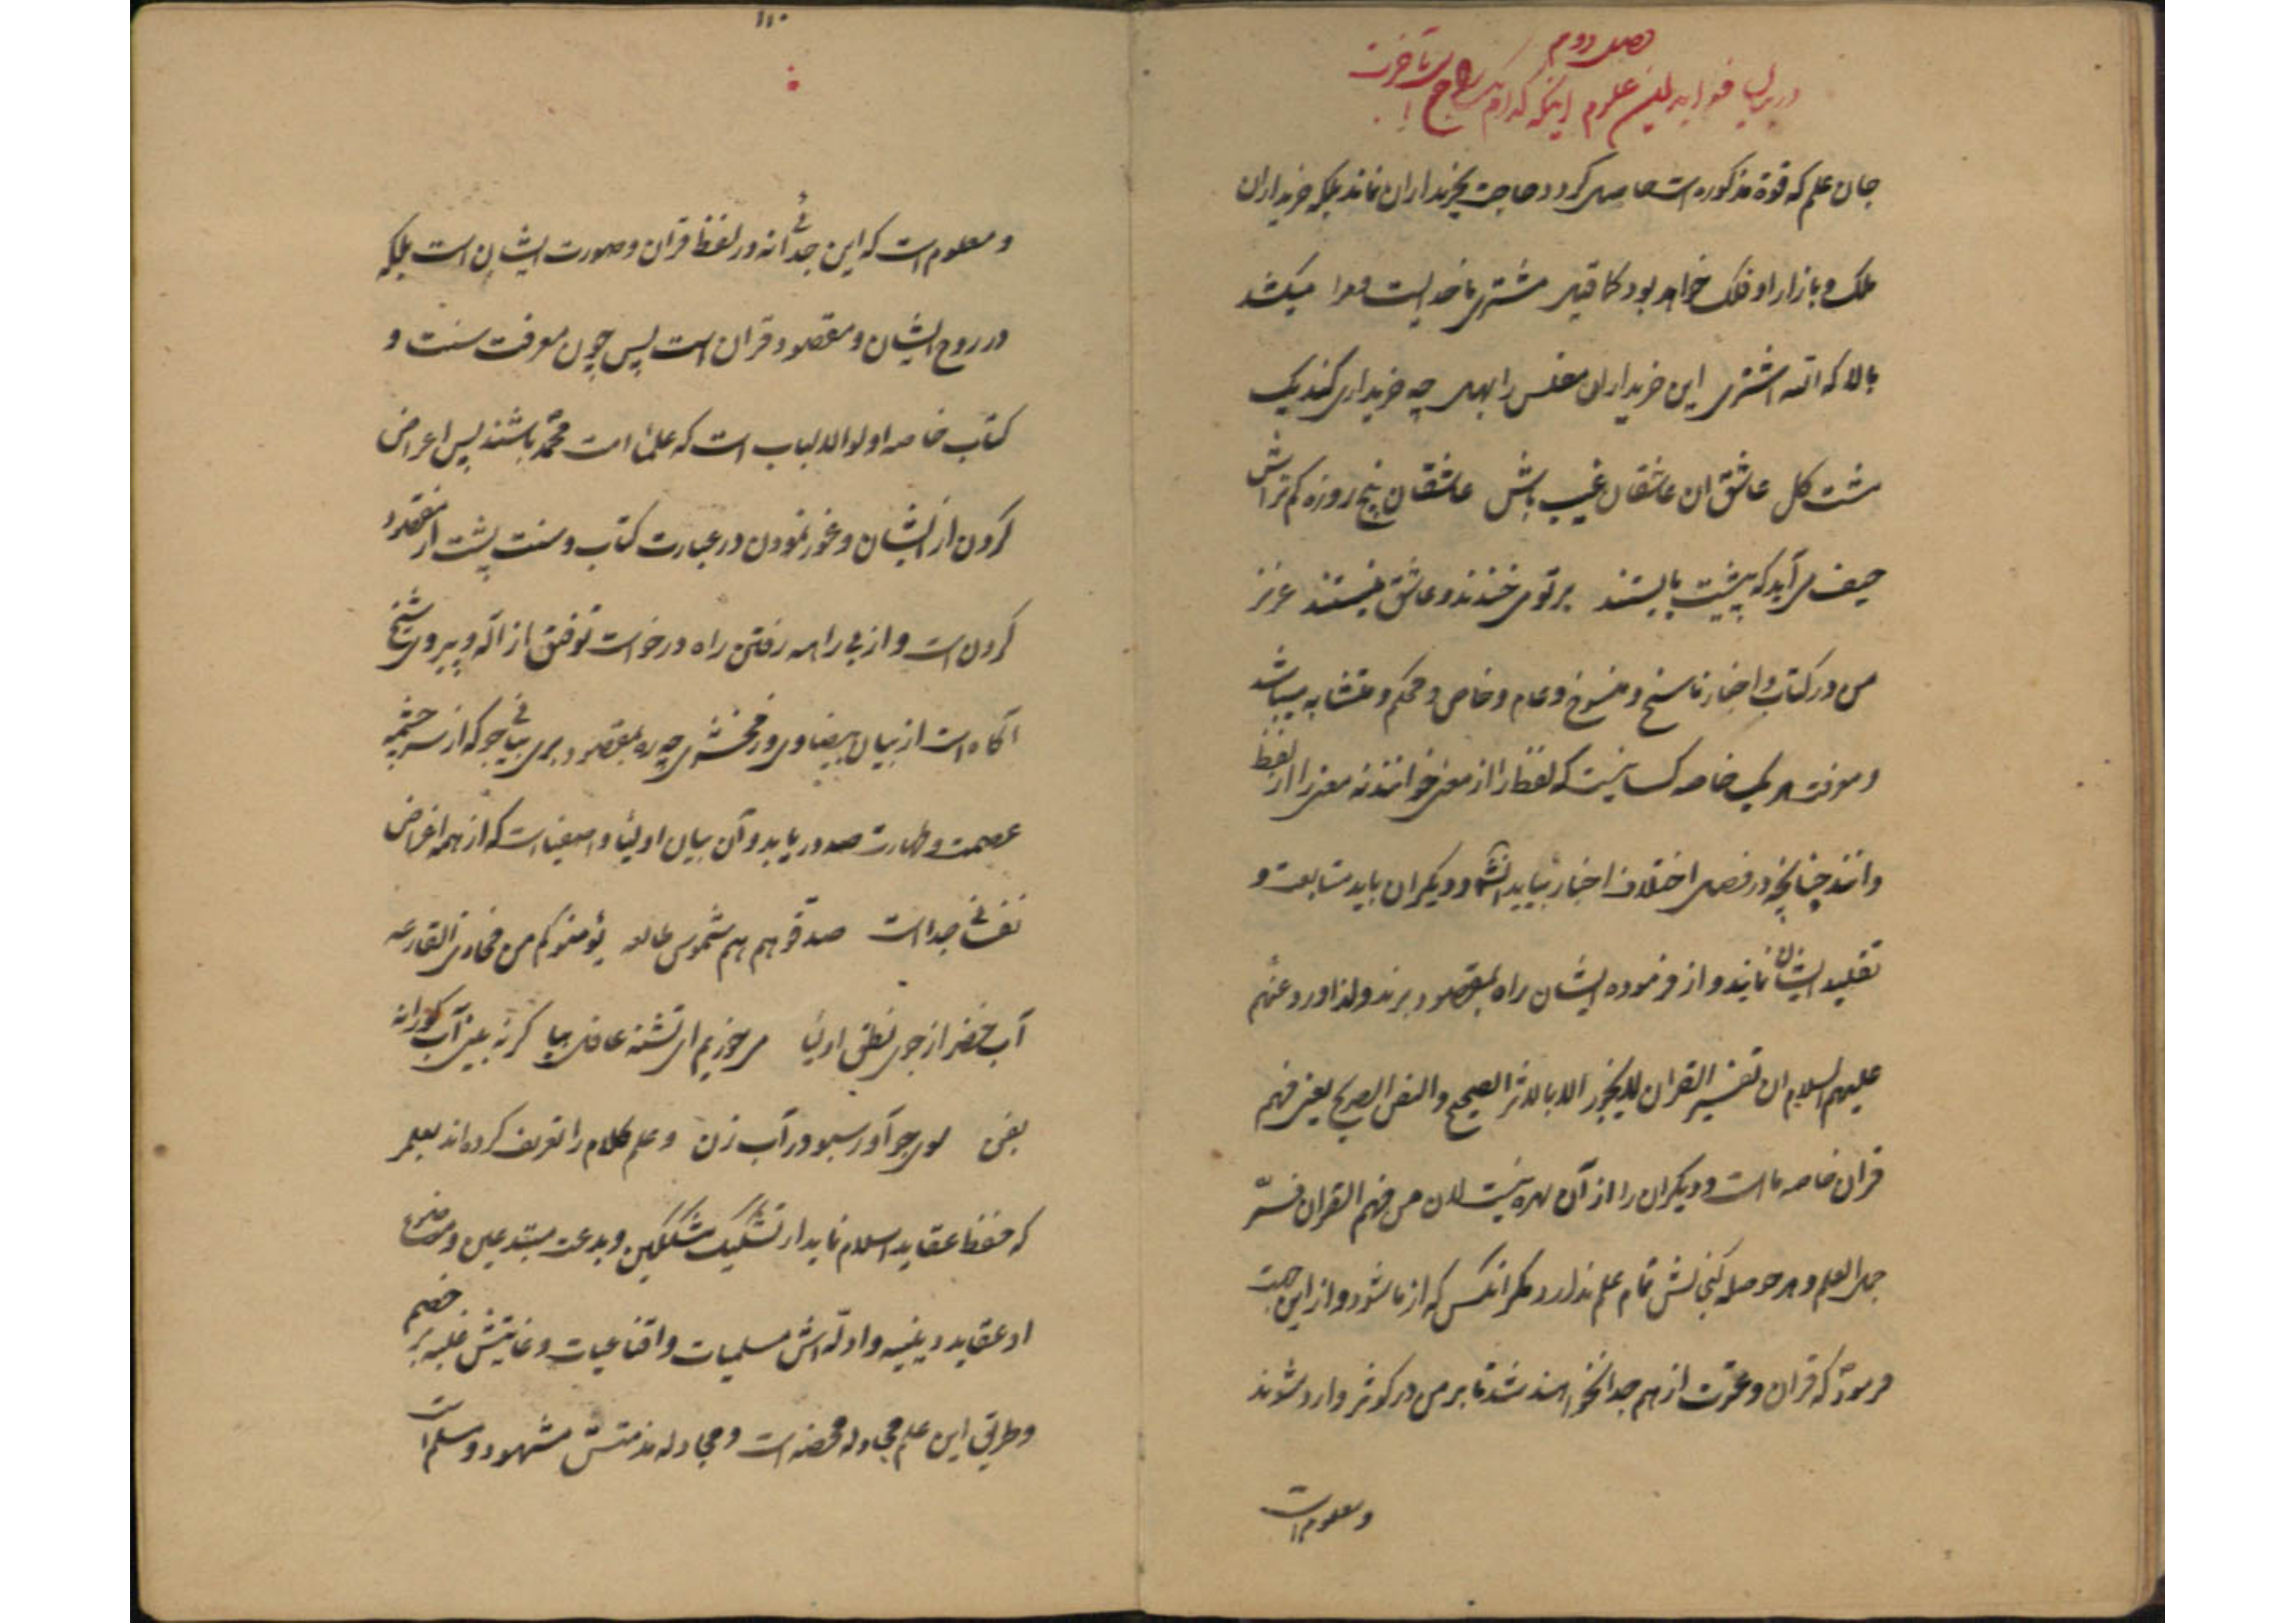 فصل دوم
در بیان فواید این علوم اینکه کدام
جان علم که قوة مذکوره است حاصل کردد حاجت بخریداران نماند بلکه خریداران
ملک و بازار او فلک خواهد بود کما قیل مشتری ما خدایست و مرا میکشد
بالا که الله اشتری این خریداران مفلس را بهل چه خریداری کند یک
مشت کل عاشق ان عاشقان غیب باش عاشقان پنج روزه کم تراش
حیف می آید که پیشت بایستند بر تو می خندند و عاشق نیستند عزیز
من در کتاب و اخبار ناسخ و منسوخ و عام و خاص و محکم و متشابه میباشد
و معرفت هر یک خاصه کسانیست که لفظ را از معنی خوانند نه معنی را از لفظ
دانند چنانچه در فصل اختلاف اخبار بیاید انشا و دیکران باید متابعت و
تقلید ایشان نمایند و از فرموده ایشان راه بمقصود برند ولذا ورد عنهم
علیهم السلام ان تفسیر القران لایجوز الا بالاثر الصحیح والنص الصریح یعنی فهم
قران خاصه ما است و دیکران را از آن بهره نیست لان من فهم القران فسّر
جمل العلم و هر حوصله کنجایش تمام علم ندارد مکر انکس که از ما شود و از این جهت
فرمود که قران و عترت از هم جدا نخواهند شد تا بر من در کوثر وارد شوند
و معلوم است
۱۱۰
و معلوم است که این جدائی نه در لفظ قران و صورت ایشان است بلکه
در روح ایشان و مقصود قران است پس چون معرفت سنت و
کتاب خاصه اولوا الالباب است که علما امت محمّد باشند پس اعراض
کردن از ایشان و غور نمودن در عبارت کتاب و سنت پشت از مقصود
کردن است و از بی راهه رفتن راه درخواست توفیق از اله و پیروی شیخ
آکاه است از بیان بیضاوی و زمخشری چه ره بمقصود بری بیانی جو که از سرچشمه
عصمت و طهارت صدور یابد و آن بیان اولیا و اصفیا است که از همه اغراض
نفسانی جدا است صدقوهم هم شموس طالعه یؤمنوکم من مخازی القارعه
آب خضر از جوی نطق اولیا می خوریم ای تشنه غافل بیا کر نه بینی آب کورانه
بفن سوی جو آور سبو در آب زن و علم کلام را تعریف کرده اند بعلمی
که حفظ عقاید اسلام نماید از تشکیک مشککین و بدعت مبتدعین و موضوع
او عقاید دینیه و ادلّه اش مسلمیات و اقناعیات و غایتش غلبه بر خصم
و طریق این علم مجادله محضه است و مجادله مذمتش مشهود و مسلم است